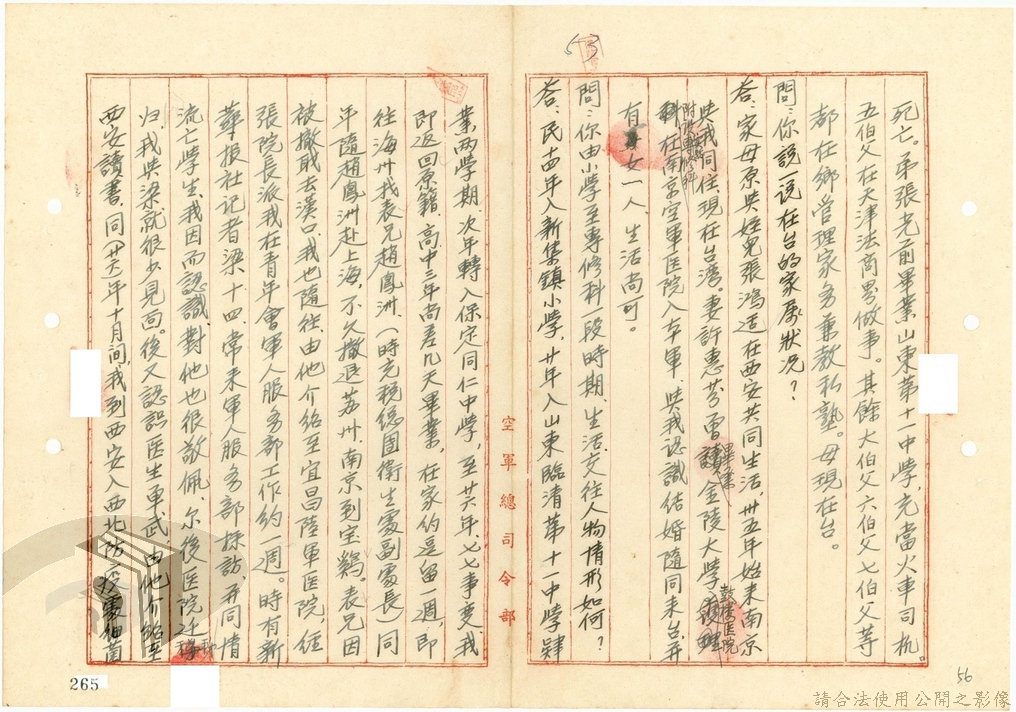 死亡。弟張光前畢業山東第十一中學，充當火車司机。
五伯父在天津法商界做事。其餘大伯父六伯父七伯父等
都在鄉管理家务兼教私塾。母現在台。
問：你說一說在台的家屬狀況？
答：家母原與姪兒張鴻适在西安共同生活，卅五年始来南京
與我同住，現在台湾。妻許惠芬曾畢業金陵大學鼓樓医院
附設
科，在南京空軍医院入本軍，與我認識結婚隨同来台，并
有女一人，生活尚可。
問：你由小學至專修科一段時期，生活交往人物情形如何？
答：民十四年入新集鎮小學，廿年入山東臨清第十一中學肄
業兩學期，次年轉入保定同仁中學，至廿六年，七七事变，我
即返回原籍，高中三年尚差几天畢業，在家約逗留一週，即
往海州找表兄趙鳳洲，（時充税總团衛生處副處長）同
年隨趙鳳洲赴上海，不久撤退苏州、南京到宝鷄。表兄因
被撤戢去漢口，我也隨往，由他介紹至宜昌陸軍医院，经
張院長派我在青年會軍人服务部工作約一週。時有新
華报社记者梁十四，常来軍人服务部採訪，并同情
流亡學生，我因而認識，對他也很敬佩，尔後医院迁
归，我與梁就很少見面。後又認識医生軍武，由他介紹至
西安讀書，同（廿六）年十月間，我到西安入西北防疫處细菌
空軍總司令部
265
56
請合法使用公開之影像